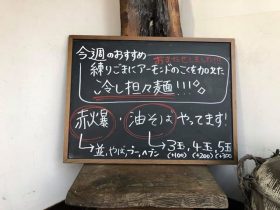 今週のおすすめ
おまたせしました!!
練りごまにアーモンドのこくを加えた
冷し担々麺!!!。
赤爆・油そばやってます!
並,やば,ブー,ヘブン
3玉,4玉,5玉
(+100) (+200) (+300)